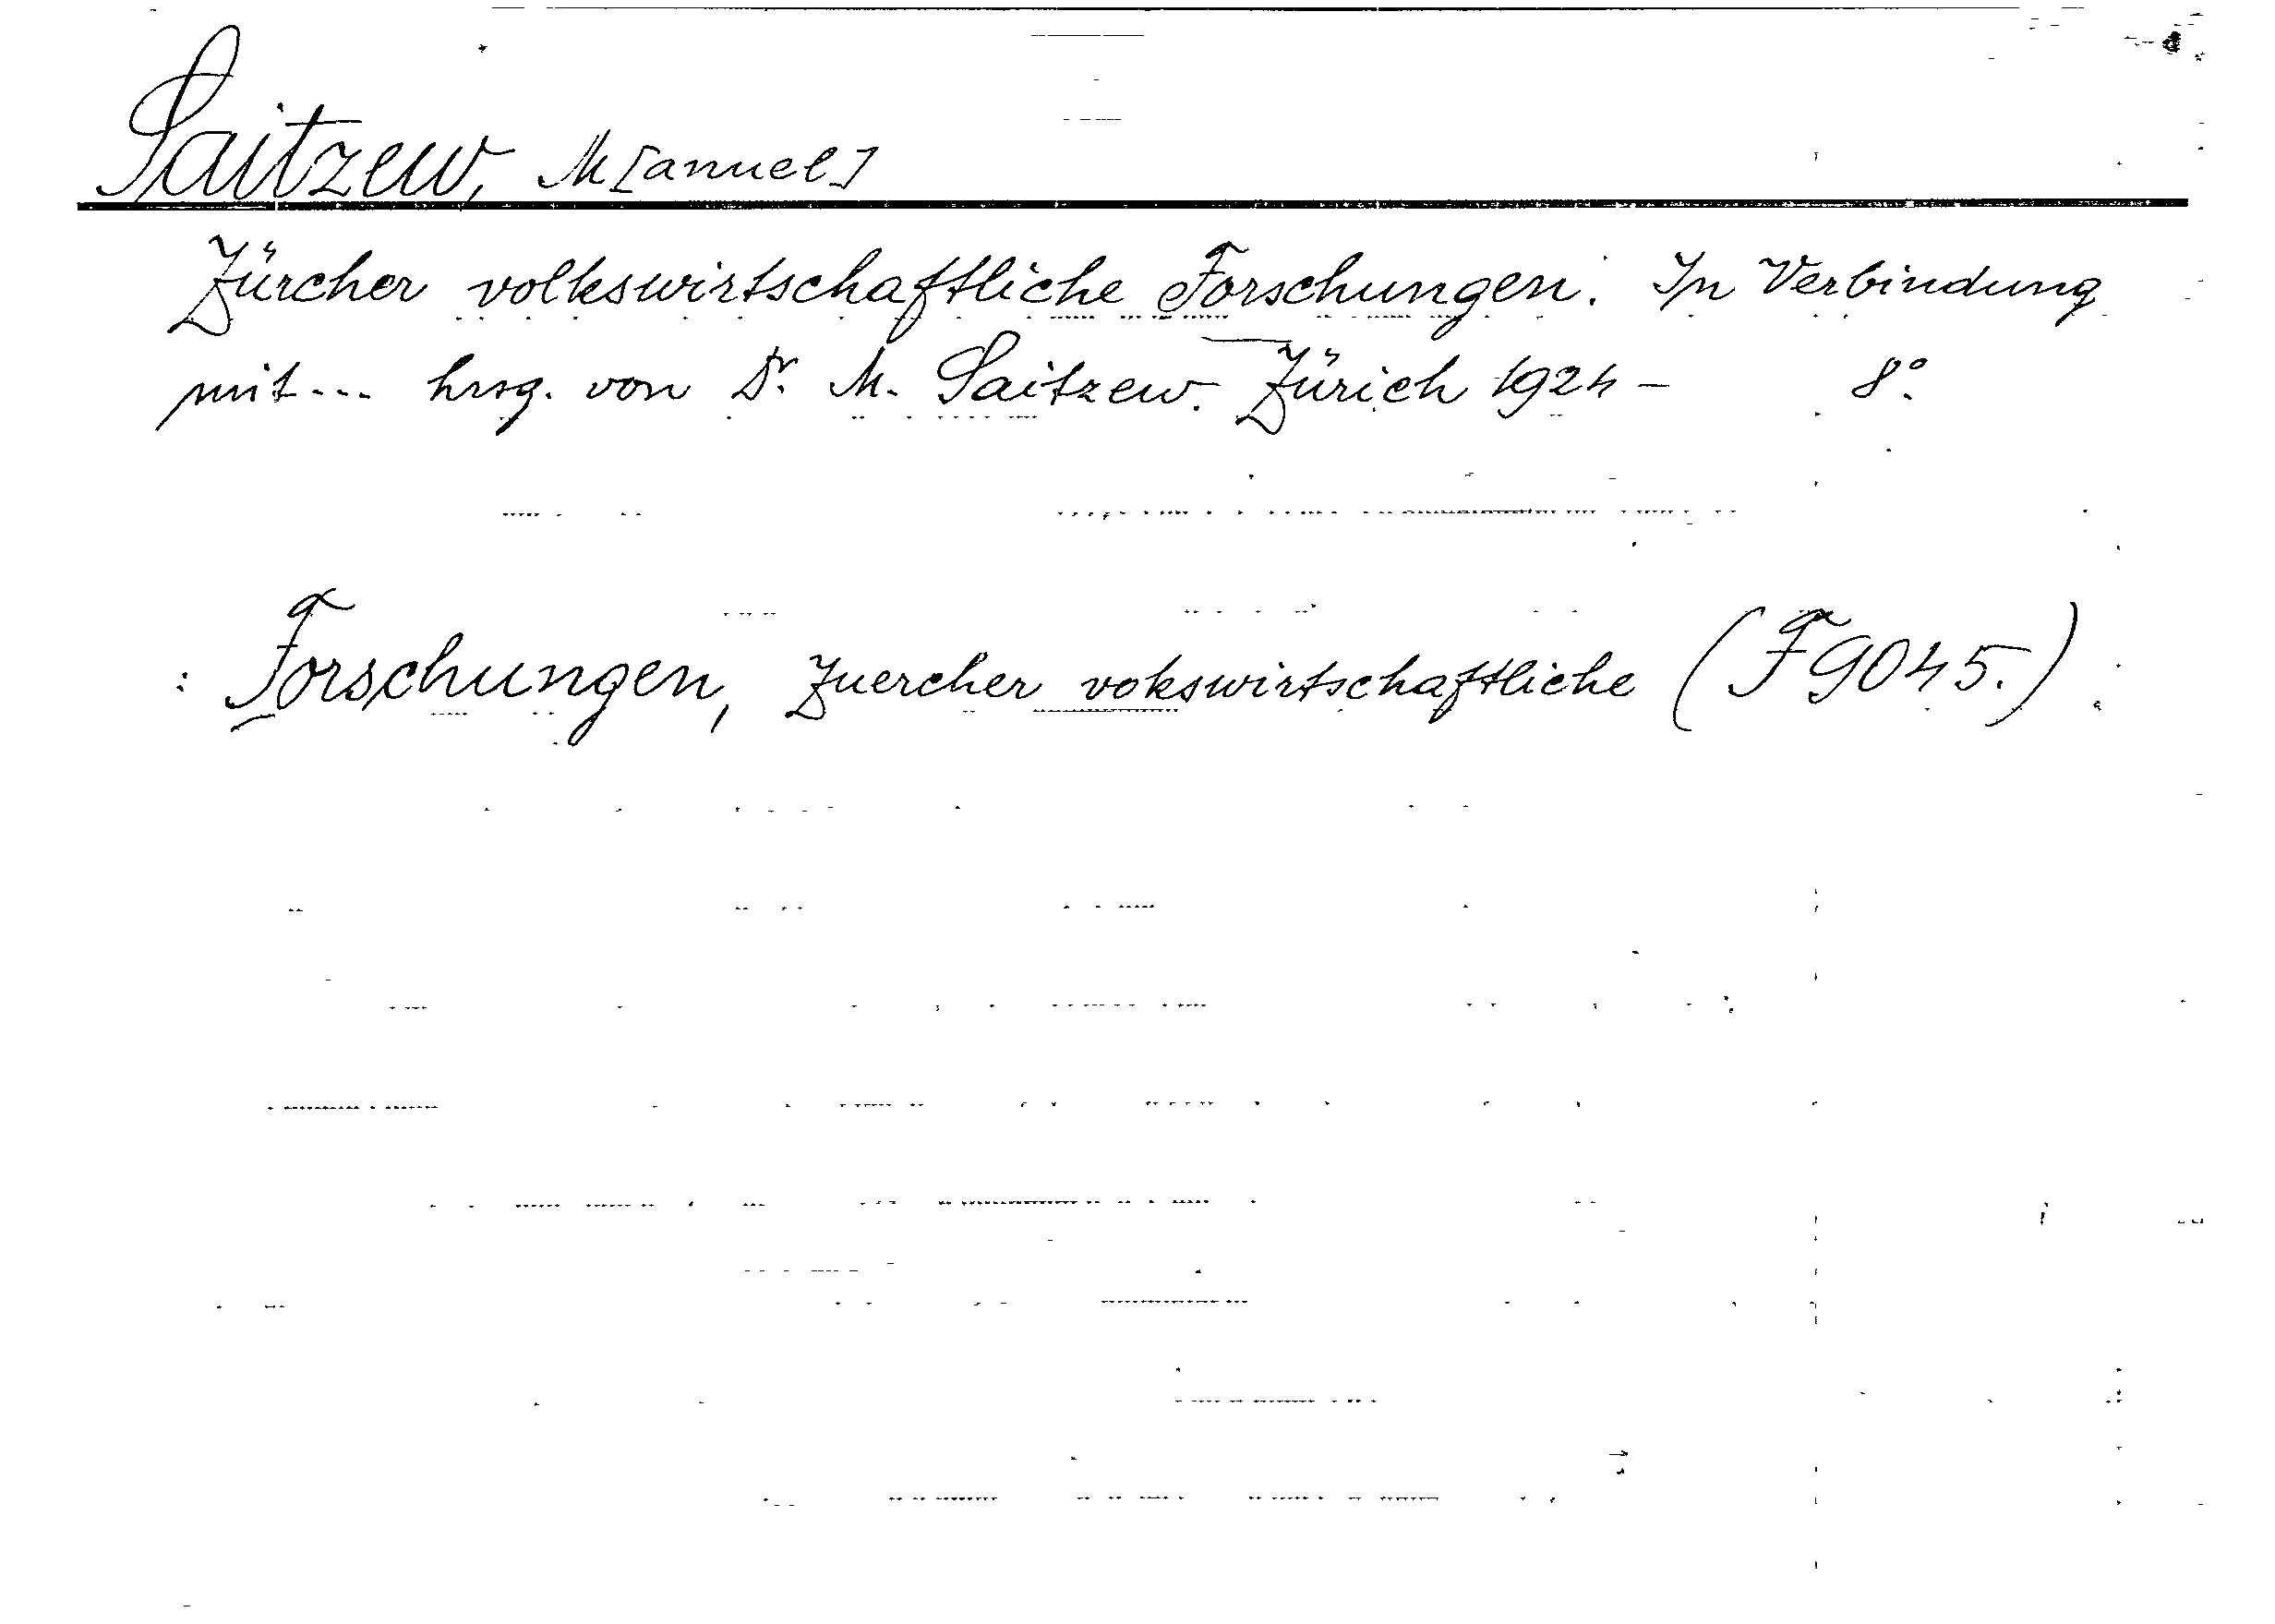 Saitzew, M[anuel]
Zürcher volkswirtschaftliche Forschungen. In Verbindung
mit... hrsg. von Dr. M. Saitzew. Zürich 1924- 8°.
: Forschungen, Zuercher vokswirtschaftliche (F 9045.)